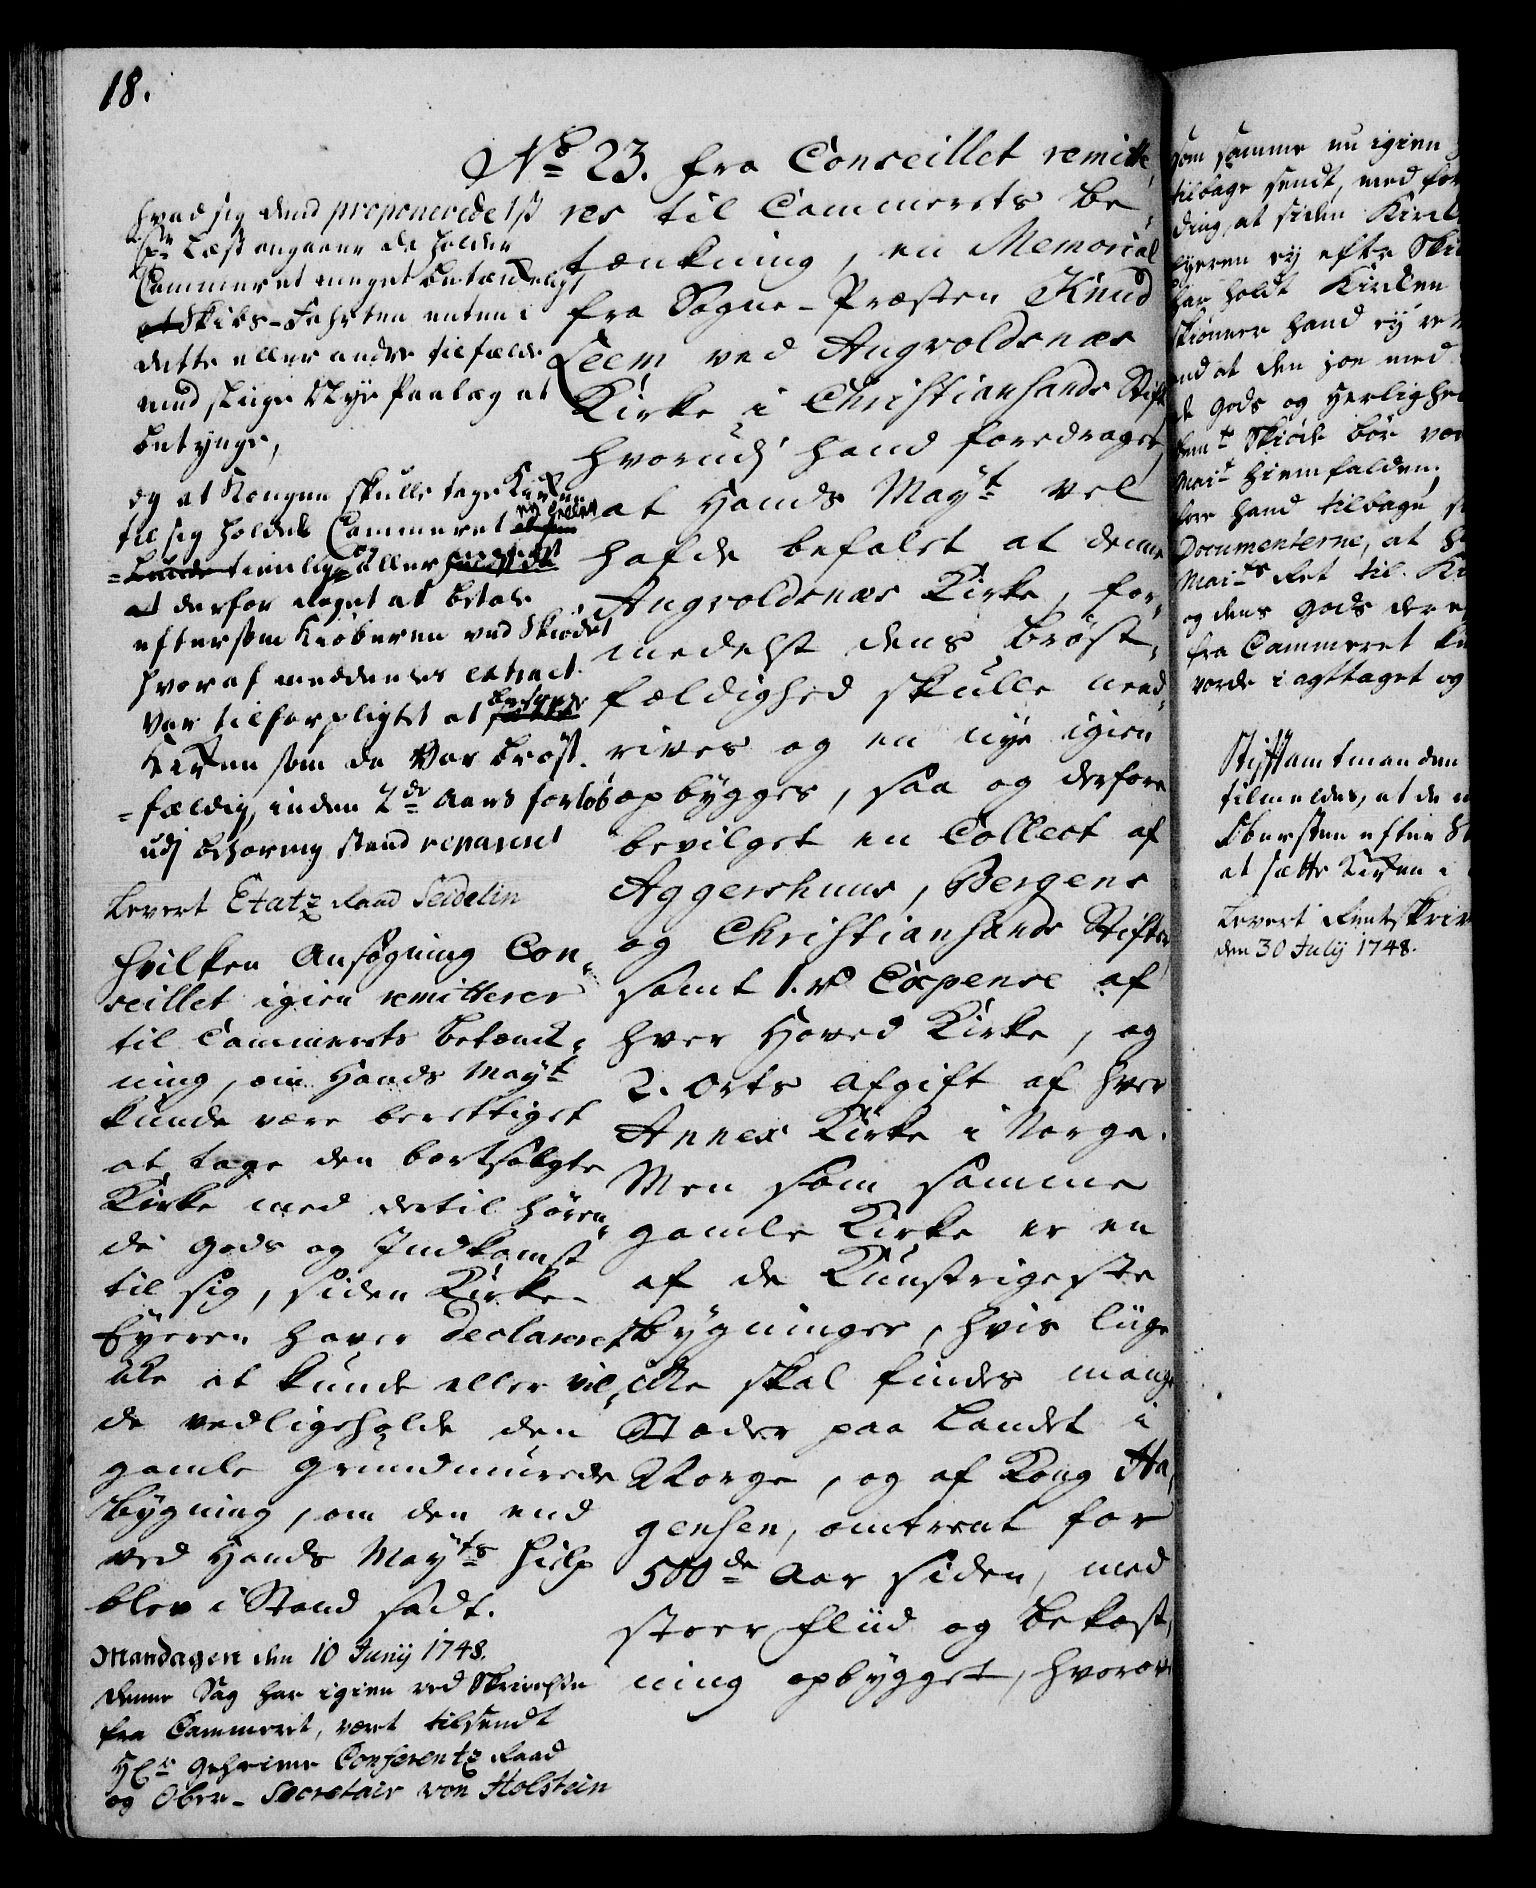 18.
No 23. fra Conseillet remitte,
res til Cammerets be,
tænkning, en Memorial
fra Sogne-Præsten Knud
Leem ved Augvoldsnæs
Kirke i Christiansands Stift
hvorudj hand foredrager,
at Hands Mayt vel
hafde befalet at denne
Augvoldsnæs Kirke, for,
medelst dens brøst,
fældighed skulle need,
rives og en nye igien
opbygges, saa og derfore
bevilget en Collect af
Aggershuus, Bergens
og Christiansands Stifter
samt 1. rd Expense af
hver Hoved Kirke, og
2. Orts afgift af hver
Annex Kirke i Norge.
Men som samme
gamle Kirke er en
af de Kunstrigeste
bygninger, hvis liige
ikke skal findes mange
Stæder paa Landet i
Norge, og af Kong Ha,
gensen, omtrent for
500de Aar siden, med
stoer fliid og bekost,
ning opbygget, hvorover
hvad sig dend proponerede 1ß
pr Læst angaaer da holder
Cammeret meget betænkeligt
at Skibs-Fahrten enten i
dette eller andre tilfælde
med slige Nye Paalæg at
betynge,
og at Kongen skulle tage Kirken
til sig holder Cammeret ey heller
tienlig, eller
at derfor noget at betale
eftersom Kiøberen ved Skiødet
hvoraf meddeeles extract
var tilforpligtet at
Kirken som da var brøst-
fældig, inden 2de Aars forløb
udj behørig stand reparert
Levert Etatz Raad Seidelin
Hvilken Ansøgning Con,
seillet igien remitterer
til Cammerets betænk,
ning, om Hands Mayt
kunde være berettiget
at tage den bortsolgte
Kirke med dertil høren,
de gods og Indkomst
til sig, siden Kirke-
Eyeren haver Declareret
ikke at kunde eller vil,
de vedligeholde den
gamle grundmurede
bygning, om den end
ved Hands Mayts hielp
blev i Stand sadt.
Mandagen den 10 Junij 1748.
denne Sag har igien ved Skrivelse
fra Cammeret, vært tilsendt
Hr geheime Conferentz Raad
og Ober-Secretair von Holstein
som samme nu igien
tilbage sendt, med for
ding, at siden Kirke
Eyeren ey efter Ski
har holdt Kirken
skiønner hand ey re
end at den joe med
gods og Herlighe
Skiøde bør vær
Mait hiemfalden,
fore hand tilbage s
Documenterne, at H
Maits Ret til Ki
og dens gods der
fra Cammeret ku
vorde i agttaget og
Stiftamtmanden
tilmeldes, at de
Obersten efter S
at sætte Kirken i
Levert Rentskriv
den 30 Julij 1748.